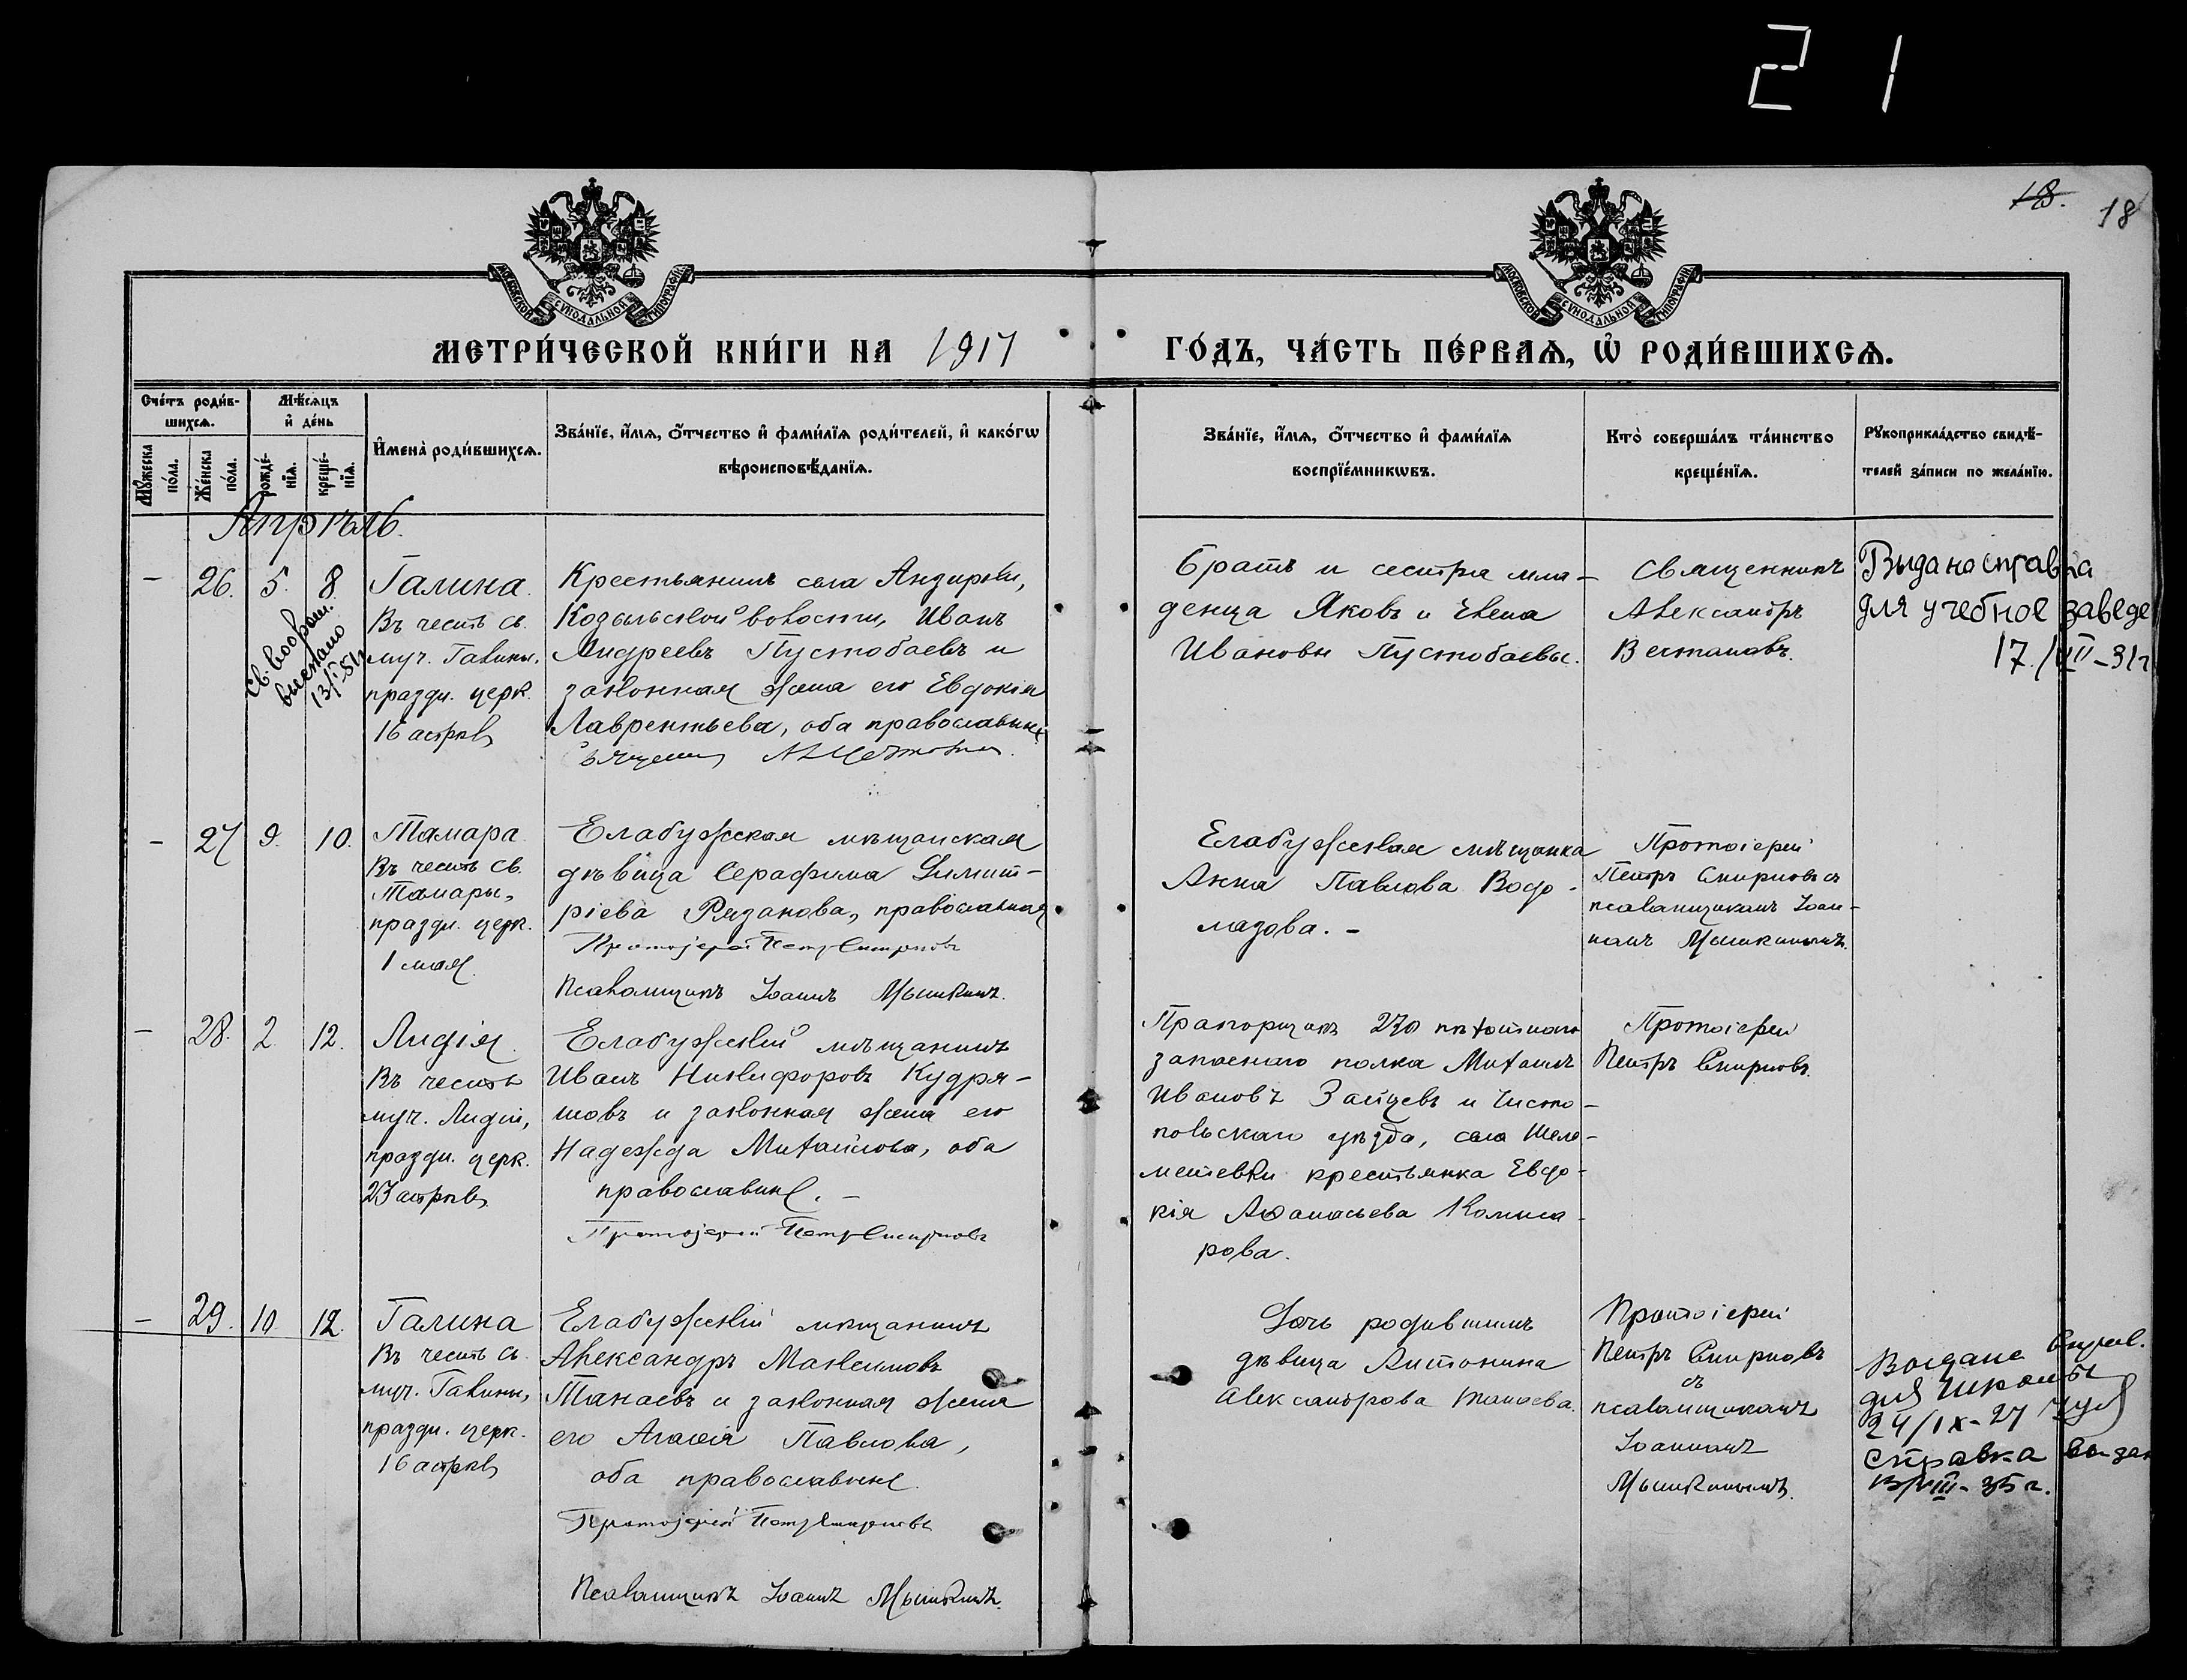 21
18.
18
МОСКОВСКОЙ СУНОДАЛЬНОЙ ТИПОГРАФІИ
МОСКОВСКОЙ СУНОДАЛЬНОЙ ТИПОГРАФІИ
МЕТРИ́ЧЕСКОЙ КНИ́ГИ НА 1917
ГО́ДЪ, ЧА́СТЬ ПЕ́РВАѦ, Ѡ҆ РОДИ́ВШИХСѦ.
Сче́тъ роди́в-
шихсѧ.
Мꙋ́жеска по́ла.
Же́нска по́ла.
Мѣ́сѧцъ
и҆ де́нь
рожде́-
нїѧ.
креще́-
нїѧ.
И҆мена̀ роди́вшихсѧ.
Зва́нїе, и҆́мѧ, ѻ҆́тчество и҆ фами́лїѧ роди́телей, и҆ како́гѡ
вѣроисповѣ́данїѧ.
Зва́нїе, и҆́мѧ, ѻ҆́тчество и҆ фами́лїѧ
воспрїе́мникѡвъ.
Кто̀ соверша́лъ та́инство
креще́нїѧ.
Рꙋкоприкла́дство свидѣ́-
телей за́писи по жела́нїю.
Апрѣль.
- 26. 5. 8.
Св. во образ.
выслано
13/I-51г
Галина.
Въ честь св.
муч. Галины,
праздн. церк.
16 апрѣля
Крестьянинъ села
Козыльской волости, Иванъ
Андреевъ Пустобаевъ и
законная жена его Евдокія
Лаврентьева, оба православные
Священникъ
Братъ и сестра мла-
денца Яковъ и Елена
Ивановы Пустобаевы.
Священникъ
Александръ
Выдана справка
для учебное заведе
17./VII-31г
- 27 9. 10.
Тамара
Въ честь св.
Тамары,
праздн. церк.
1 мая.
Елабужская мѣщанская
дѣвица Серафима Димит-
ріева Рязанова, православная
Протоіерей Петръ Смирновъ
Псаломщикъ Іоаннъ Мышкинъ.
Елабужская мѣщанка
Анна Павлова Водо-
лазова. -
Протоіерей
Петръ Смирновъ съ
псаломщикомъ Іоан-
номъ Мышкинымъ.
- 28. 2. 12.
Лидія.
Въ честь
муч. Лидіи,
праздн. церк.
23 апрѣля
Елабужскій мѣщанинъ
Иванъ Никифоровъ Кудря-
шовъ и законная жена его
Надежда Михайлова, оба
православные. -
Протоіерей Петръ Смирновъ
Прапорщикъ 270 пѣхотнаго
запаснаго полка Михаилъ
Ивановъ Зайцевъ и Чисто-
польскаго уѣзда, села Шере-
метевки крестьянка Евдо-
кія Аѳанасьева Комиса-
рова.
Протоіерей
Петръ Смирновъ.
- 29. 10. 12.
Галина
Въ честь св.
муч. Галины,
праздн. церк.
16 апрѣля
Елабужскій мѣщанинъ
Александръ Максимовъ
Танаевъ и законная жена
его Агаѳія Павлова,
оба православные.
Протоіерей Петръ Смирновъ
Псаломщикъ Іоаннъ Мышкинъ.
Дочь родившимъ
дѣвица Антонина
Александрова Танаева.
Протоіерей
Петръ Смирновъ
съ
псаломщикомъ
Іоанномъ
Мышкинымъ.
Выдана справ.
для школы
24/IX-27
Справка выдан
13/VIII-35г.